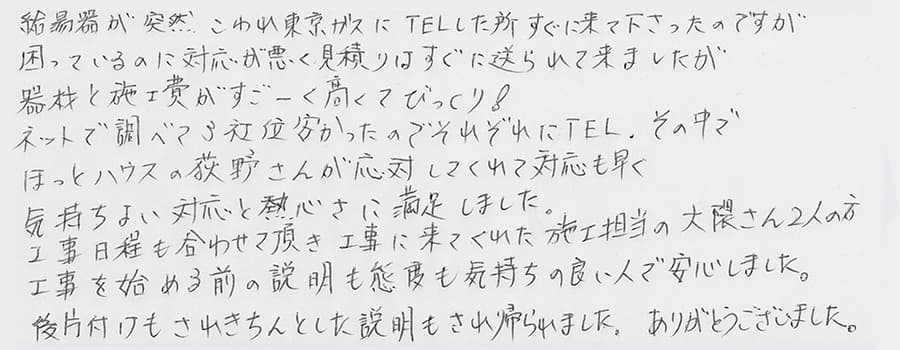 給湯器が突然こわれ東京ガスにTELした所すぐに来て下さったのですが
困っているのに対応が悪く見積りはすぐに送られて来ましたが
器材と施工費がすごーく高くてびっくり!
ネットで調べて3社位安かったのでそれぞれにTEL.その中で
ほっとハウスの荻野さんが応対してくれて対応も早く
気持ちよい対応と熱心さに満足しました。
工事日程も合わせて頂き工事に来てくれた施工担当の大隈さん2人の方
工事を始める前の説明も態度も気持ちの良い人で安心しました。
後片付けもされきちんとした説明もされ帰られました。ありがとうございました。